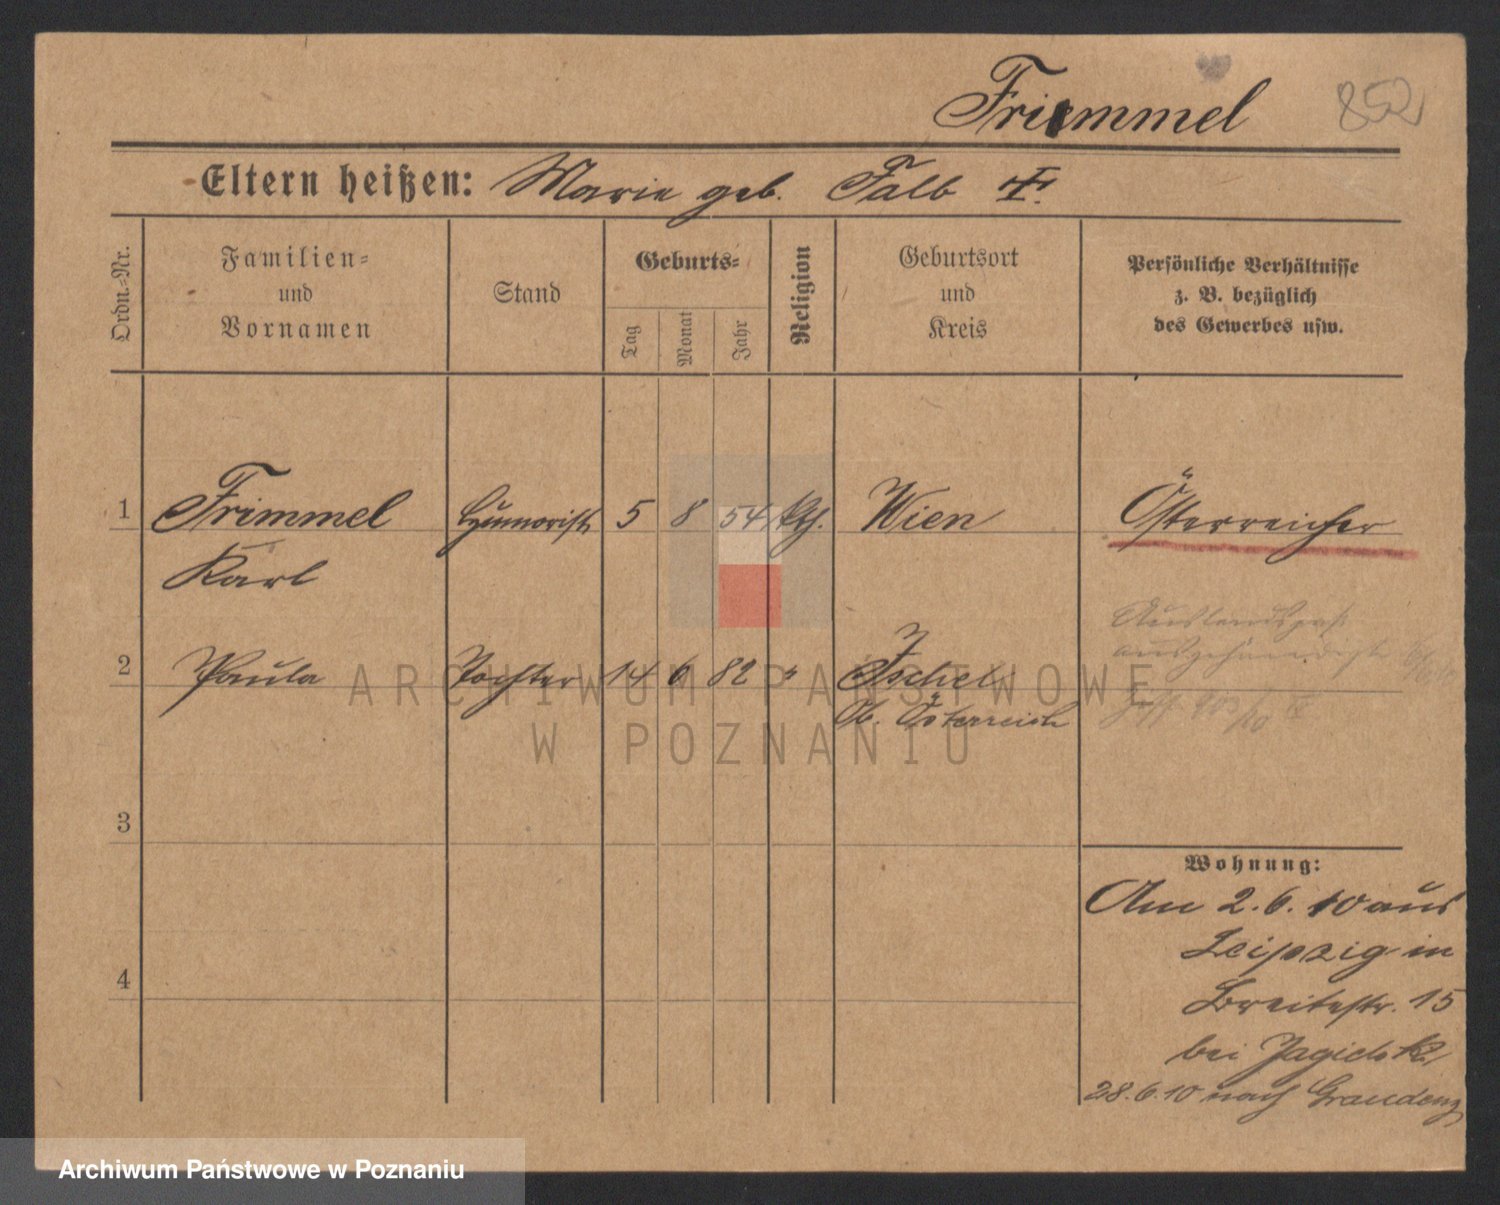 Frimmel 852
Eltern heißen: Marie geb. Falb †.
Ordn.-Nr.
Familien-
und
Vornamen
Stand
Geburts-
Tag
Monat
Jahr
Religion
Geburtsort
und
Kreis
Persönliche Verhältnisse
z. B. bezüglich
des Gewerbes usw.
1 Frimmel Humorist 5 8 54 kth. Wien Österreicher
Karl
2 Paula Tochter 14 6 82 " Ischel
Ob. Österreich
Auslandspaß
3
4
Wohnung:
Am 2.6.10 aus
Leipzig in
Breitestr. 15
bei
28.6.10 nach Graudenz
ARCHIWUM PAŃSTWOWE
W POZNANIU
Archiwum Państwowe w Poznaniu